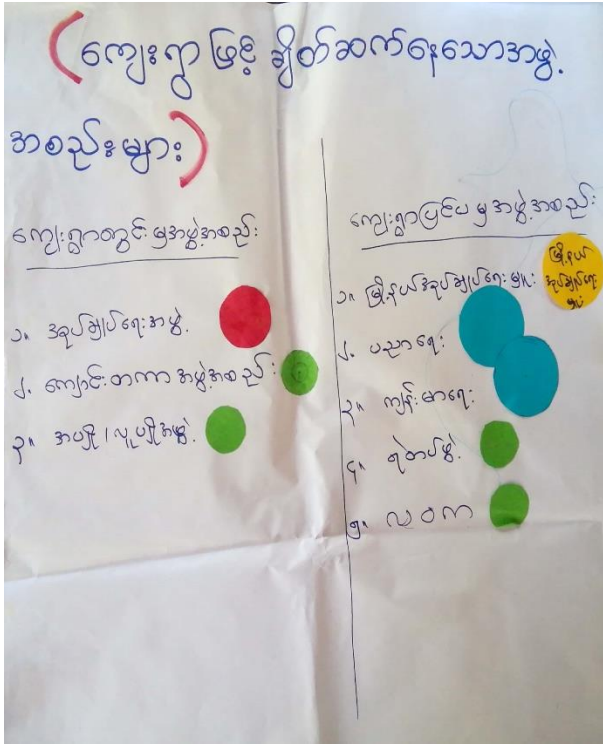 (ကျေးရွာ ဖြင့် ချိတ်ဆက်နေသောအဖွဲ့
အစည်းများ)
ကျေးရွာတွင်း မှအဖွဲ့အစည်း
၁။ အုပ်ချုပ်ရေးအဖွဲ့
၂. ကျောင်းတကာ အဖွဲ့အစည်း
၃။ အပျို / လူပျိုအဖွဲ့
ကျေးရွာပြင်ပ မှ အဖွဲ့အစည်း
၁။ မြို့နယ်အုပ်ချုပ်ရေး မှူး
မြို့နယ်
အုပ်ချုပ်ရေး
မှူး
၂. ပညာရေး
၃။ ကျန်းမာရေး
၄။ ရဲတပ်ဖွဲ့
၅။ လဝက